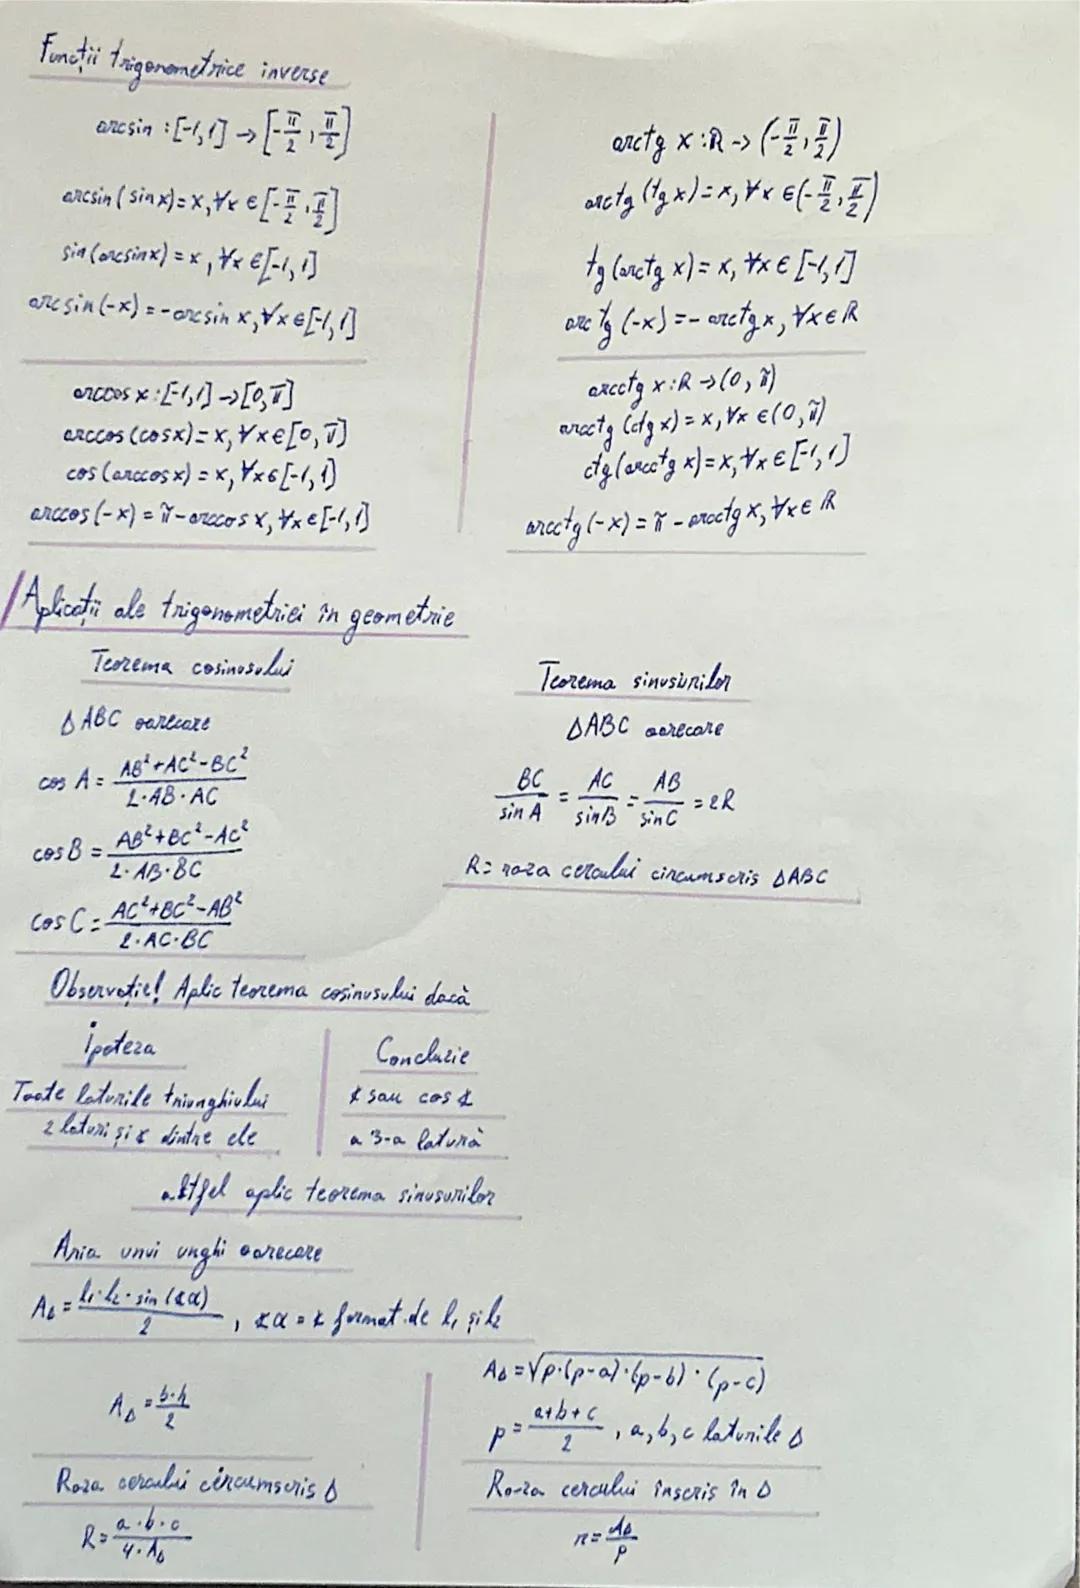 Funcții trigonometrice inverse
arcsin : [-1,1] → [-π/2, π/2]
arcsin (sin x) = x, ∀x ∈ [-π/2, π/2]
sin (arcsin x) = x, ∀x ∈ [-1, 1]
arcsin (-x) = - arcsin x, ∀x ∈ [-1, 1]
arccos x : [-1,1] → [0, π]
arccos (cos x) = x, ∀x ∈ [0, π]
cos (arccos x) = x, ∀x ∈ [-1, 1]
arccos (-x) = π - arccos x, ∀x ∈ [-1, 1]
arctg x : R → (-π/2, π/2)
arctg (tg x) = x, ∀x ∈ (-π/2, π/2)
tg (arctg x) = x, ∀x ∈ [-1, 1]
arctg (-x) = - arctg x, ∀x ∈ R
arcctg x : R → (0, π)
arcctg (ctg x) = x, ∀x ∈ (0, π)
ctg (arcctg x) = x, ∀x ∈ [-1, 1]
arcctg (-x) = π - arcctg x, ∀x ∈ R
Aplicații ale trigonometriei în geometrie
Teorema cosinusului
Δ ABC oarecare
cos A = (AB² + AC² - BC²) / (2·AB·AC)
cos B = (AB² + BC² - AC²) / (2·AB·BC)
cos C = (AC² + BC² - AB²) / (2·AC·BC)
Teorema sinusurilor
ΔABC oarecare
BC / sin A = AC / sin B = AB / sin C = 2R
R = raza cercului circumscris ΔABC
Observație! Aplic teorema cosinusului dacă
Ipoteza
Toate laturile triunghiului
2 laturi și ∢ dintre ele
Concluzie
∢ sau cos ∢
a 3-a latură
altfel aplic teorema sinusurilor
Aria unui unghi oarecare
AΔ = (l₁·l₂·sin (∢α)) / 2, ∢α = ∢ format de l₁ și l₂
AΔ = b·h / 2
AΔ = √(p·(p-a)·(p-b)·(p-c))
p = (a+b+c) / 2, a, b, c laturile Δ
Raza cercului circumscris Δ
R = a·b·c / (4·AΔ)
Raza cercului înscris în Δ
r = AΔ / p